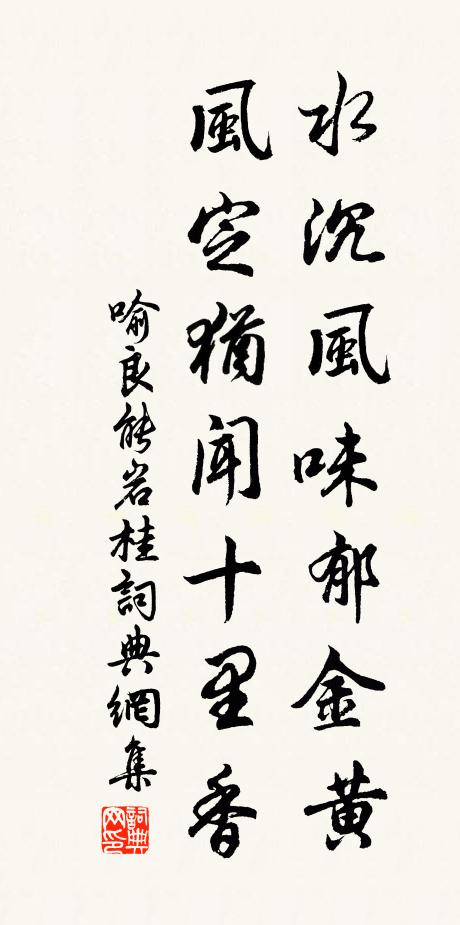 水沉風味郁金黃
風定猶聞十里香
喻良能岩桂詞典網集
詞典网印